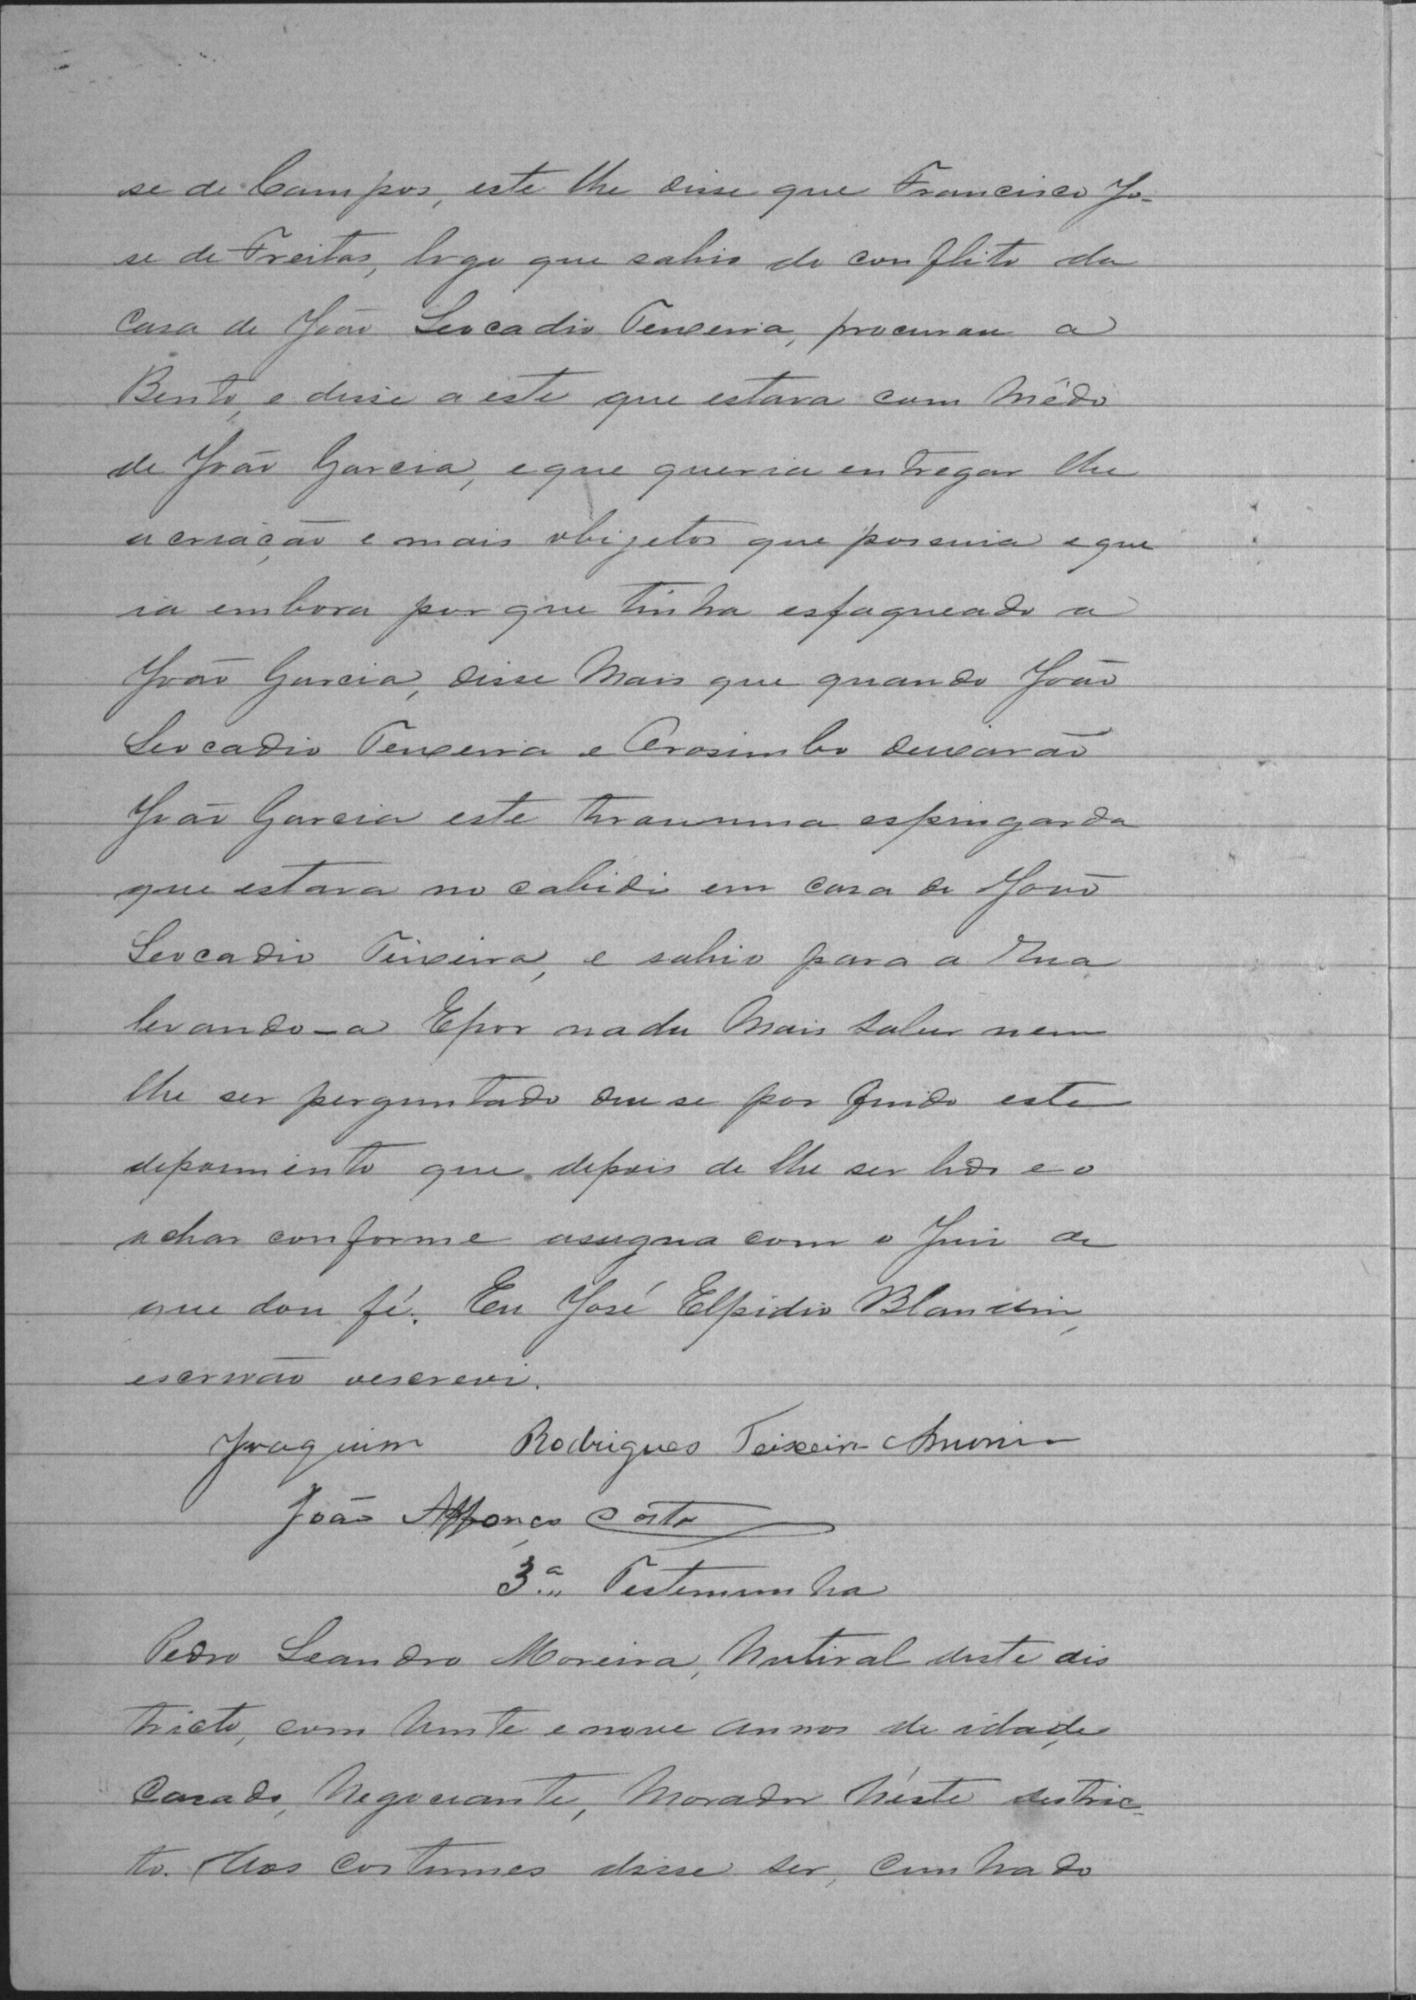 se de Campos, este lhe disse que Francisco Jo-
se de Freitas, logo que sahio do conflito da
casa de João Leocadio Teixeira, procurou a
Bento, e disse a este que estava com médo
de João Garcia, e que queria entregar lhe
a criação e mais obijetos que possuia e que
ia embora por que tinha esfaqueado a
João Garcia, disse mais que quando João
Leocadio Teixeira e Orosimbo deixarão
João Garcia este tirou uma espingarda
que estava no cabidi em casa de João
Leocadio Teixeira, e sahio para a Rua
levando-a E por nada mais saber nem
lhe ser perguntado deu se por findo este
depoimento que depois de lhe ser lido e o
achar conforme assigna com o Juiz de
que dou fé. Eu José Elpidio Blandin,
escrivão o escrevi.
Joaquim Rodrigues Teixeira
João Affonço Costa
3.ª Testemunha
Pedro Leandro Moreira, Natural deste dis
tricto, com vinte e nove annos de idade,
Casado, Negociante, Morador néste distric-
to. Aos costumes disse ser, cunhado